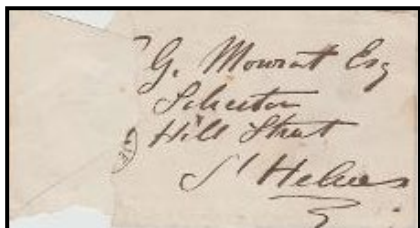 G. Mourant Esq
Solicitor
Hill Street
St Heliers